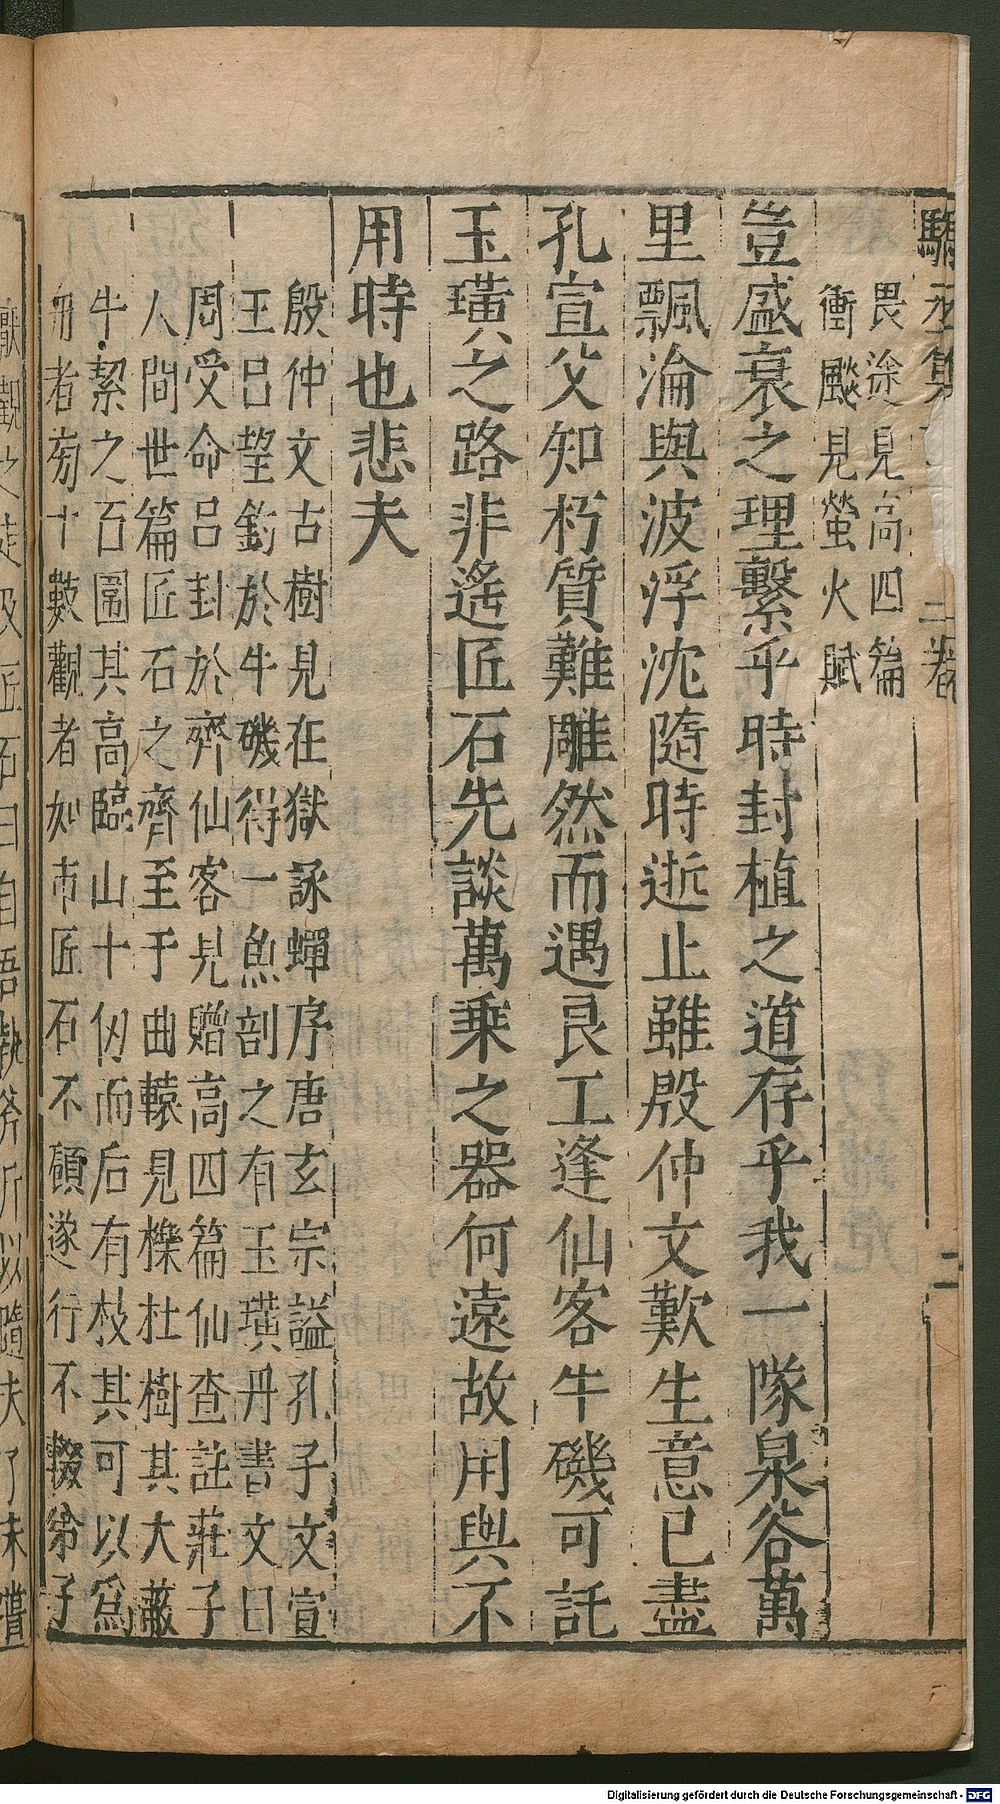 二卷
二
畏途見高四篇
衝飇見螢火賦
豈盛衰之理繫乎時封植之道存乎我一隊泉谷萬
里飄淪與波浮沈隨時逝止雖殷仲文歎生意已盡
孔宣父知朽質難雕然而遇良工逢仙客牛磯可託
玉璜之路非遙匠石先談萬乗之器何遠故用與不
用時也悲夫
殷仲文古樹見在獄詠蟬序唐玄宗謚孔子文宣
王呂望釣於牛磯得一魚剖之有玉璜丹書文曰
周受命呂封於齊仙客見贈高四篇仙查註莊子
人間世篇匠石之齊至于曲轅見櫟杜樹其大蔽
牛絜之百圍其高臨山十仭而后有枝其可以爲
舟者旁十數觀者如市匠石不顧遂行不輟弟子
厭觀之走及匠石曰自吾執斧斤以隨夫子未嘗
Digitalisierung gefördert durch die Deutsche Forschungsgemeinschaft - DFG